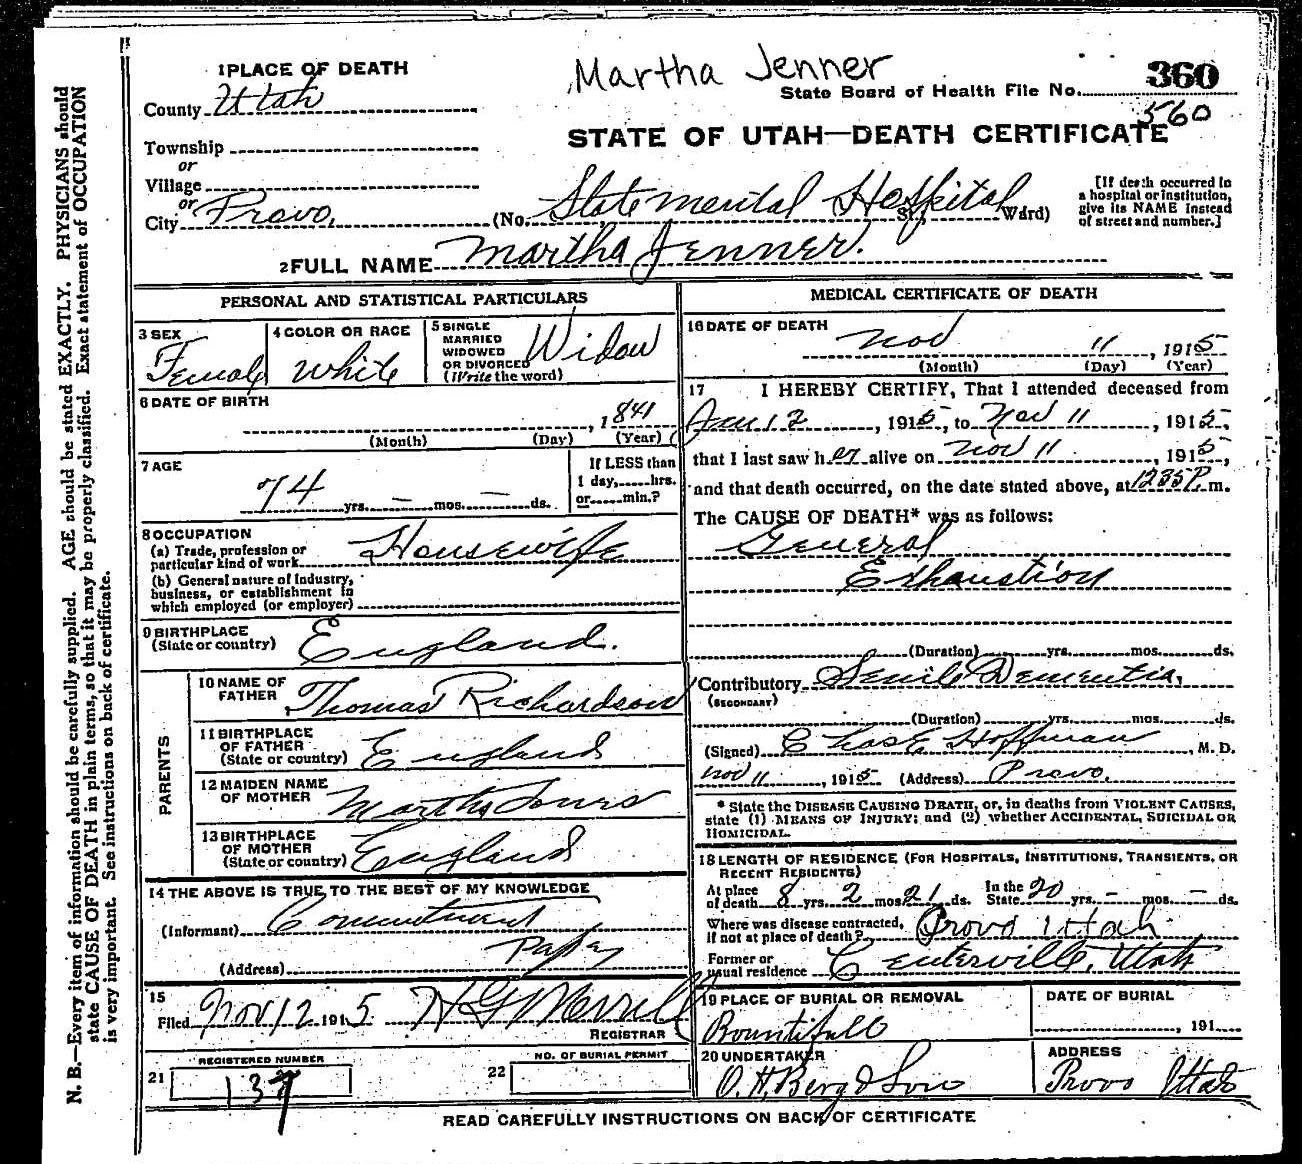 Martha Jenner
360
State Board of Health File No.
560
STATE OF UTAH—DEATH CERTIFICATE
1 PLACE OF DEATH
County Utah
Township
or
Village
or
City Provo, (No. State mental Hospital St., Ward)
[If death occurred in
a hospital or institution,
give its NAME instead
of street and number.]
2 FULL NAME Martha Jenner.
PERSONAL AND STATISTICAL PARTICULARS
3 SEX
Female
4 COLOR OR RACE
White
5 SINGLE
MARRIED
WIDOWED
OR DIVORCED
(Write the word)
Widow
6 DATE OF BIRTH
, 1841
(Month) (Day) (Year)
7 AGE
74 yrs. — mos. — ds.
If LESS than
1 day, hrs.
or min.?
8 OCCUPATION
(a) Trade, profession or
particular kind of work Housewife
(b) General nature of Industry,
business, or establishment in
which employed (or employer)
9 BIRTHPLACE
(State or country) England.
PARENTS
10 NAME OF
FATHER Thomas Richardson
11 BIRTHPLACE
OF FATHER
(State or country) England
12 MAIDEN NAME
OF MOTHER Martha Jones
13 BIRTHPLACE
OF MOTHER
(State or country) England
14 THE ABOVE IS TRUE TO THE BEST OF MY KNOWLEDGE
(Informant) Commitment
(Address)
15
Filed Nov 12 1915 H G Merrill
REGISTRAR
21 REGISTERED NUMBER
137
22 NO. OF BURIAL PERMIT
MEDICAL CERTIFICATE OF DEATH
16 DATE OF DEATH
Nov 11, 1915
(Month) (Day) (Year)
17 I HEREBY CERTIFY, That I attended deceased from
, 1915, to Nov 11, 1915,
that I last saw her alive on Nov 11, 1915,
and that death occurred, on the date stated above, at 1235 P. m.
The CAUSE OF DEATH* was as follows:
General
Exhaustion
(Duration) yrs. mos. ds.
Contributory Senile Dementia,
(SECONDARY)
(Duration) yrs. mos. ds.
(Signed) Chas E Hoffman, M. D.
Nov 11, 1915 (Address) Provo.
* State the DISEASE CAUSING DEATH, or, in deaths from VIOLENT CAUSES,
state (1) MEANS OF INJURY; and (2) whether ACCIDENTAL, SUICIDAL OR
HOMICIDAL.
18 LENGTH OF RESIDENCE (FOR HOSPITALS, INSTITUTIONS, TRANSIENTS, OR
RECENT RESIDENTS)
At place
of death 8 yrs. 2 mos. 21 ds.
In the
State 20 yrs. — mos. — ds.
Where was disease contracted,
if not at place of death? Provo Utah
Former or
usual residence Centerville, Utah
19 PLACE OF BURIAL OR REMOVAL
Bountifull
DATE OF BURIAL
, 191
20 UNDERTAKER
O. H. Berg & Son
ADDRESS
Provo Utah
READ CAREFULLY INSTRUCTIONS ON BACK OF CERTIFICATE
N. B.—Every item of information should be carefully supplied. AGE should be stated EXACTLY. PHYSICIANS should
state CAUSE OF DEATH in plain terms, so that it may be properly classified. Exact statement of OCCUPATION
is very important. See instructions on back of certificate.